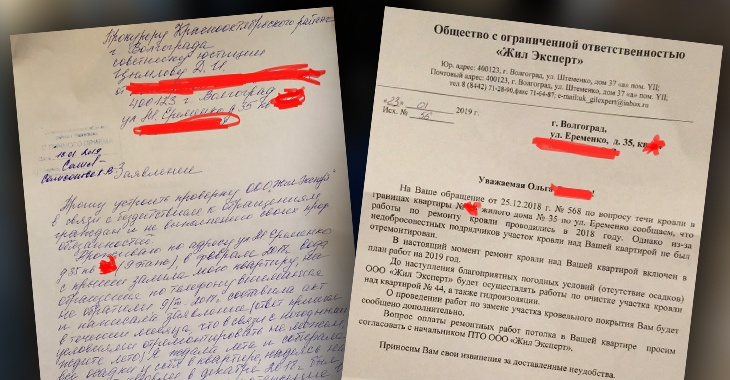 Прокурору Краснооктябрьского района
г. Волгограда
советнику юстиции
Д. И.
от
400123 г. Волгоград
ул. Еременко д. 35 кв
Заявление
Прошу устроить проверку ООО „Жил Эксперт"
в связи с бездействием к обращениям
граждан и не выполнением своих прямых
обязанностей.
Проживаю по адресу ул. Еременко
д 35 кв (9 этаж), в феврале 2018 вода
с крыши залила мою квартиру,
обращения по телефону внимания
не обратили. составила акт
и написала заявление, ответ пришел
в течении месяца, что в связи с погодными
условиями отремонтировать не можем,
ждите лета. Я ждала лета и собирала
в декабре 2018
Общество с ограниченной ответственностью
«Жил Эксперт»
Юр. адрес: 400123, г. Волгоград, ул. Штеменко, дом 37 «а» пом. VII;
Почтовый адрес: 400123, г. Волгоград, ул. Штеменко, дом 37 «а» пом. VII;
тел 8 (8442) 71-28-90, факс 71-64-87; e-mail:uk_gilexpert@inbox.ru
«23» 01 2019 г.
Исх. № 56
г. Волгоград,
ул. Еременко, д. 35, кв
Уважаемая Ольга !
На Ваше обращение от 25.12.2018 г. № 568 по вопросу течи кровли в
границах квартиры № жилого дома № 35 по ул. Еременко сообщаем, что
работы по ремонту кровли проводились в 2018 году. Однако из-за
недобросовестных подрядчиков участок кровли над Вашей квартирой не был
отремонтирован.
В настоящий момент ремонт кровли над Вашей квартирой включен в
план работ на 2019 год.
До наступления благоприятных погодных условий (отсутствие осадков)
ООО «Жил Эксперт» будет осуществлять работы по очистке участка кровли
над квартирой № 44, а также гидроизоляции.
О проведении работ по замене участка кровельного покрытия Вам будет
сообщено дополнительно.
Вопрос оплаты ремонтных работ потолка в Вашей квартире просим
согласовать с начальником ПТО ООО «Жил Эксперт».
Приносим Вам свои извинения за доставленные неудобства.